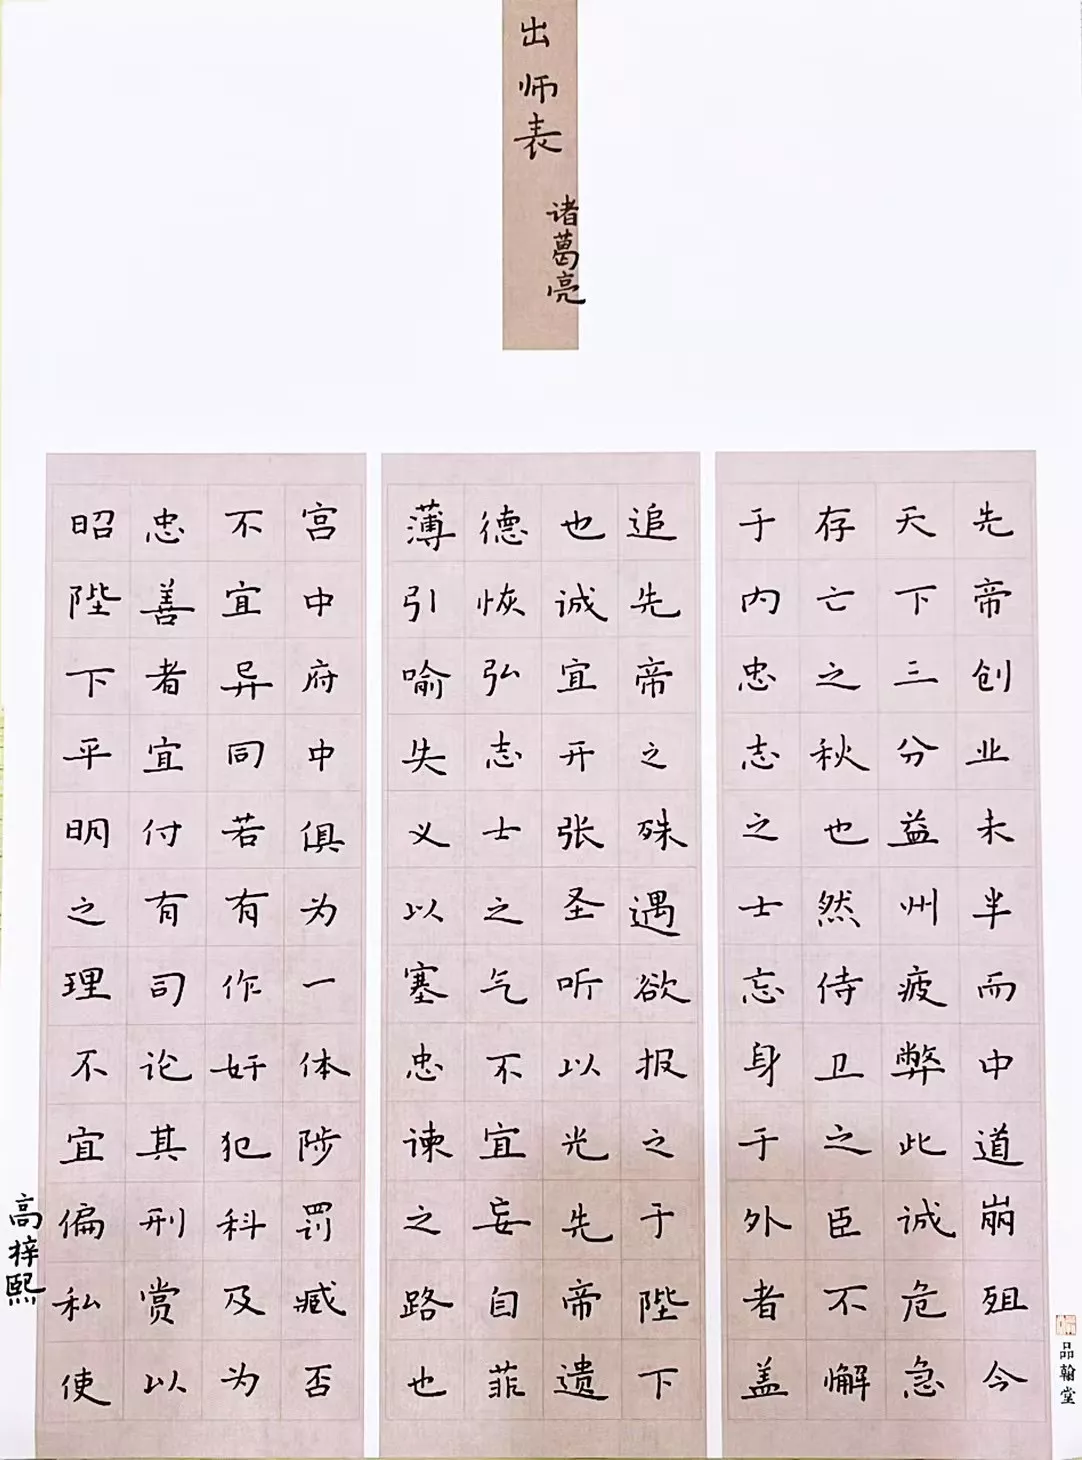 出师表
诸葛亮
先帝创业未半而中道崩殂今
天下三分益州疲弊此诚危急
存亡之秋也然侍卫之臣不懈
于内忠志之士忘身于外者盖
追先帝之殊遇欲报之于陛下
也诚宜开张圣听以光先帝遗
德恢弘志士之气不宜妄自菲
薄引喻失义以塞忠谏之路也
宫中府中俱为一体陟罚臧否
不宜异同若有作奸犯科及为
忠善者宜付有司论其刑赏以
昭陛下平明之理不宜偏私使
高梓熙
品翰堂